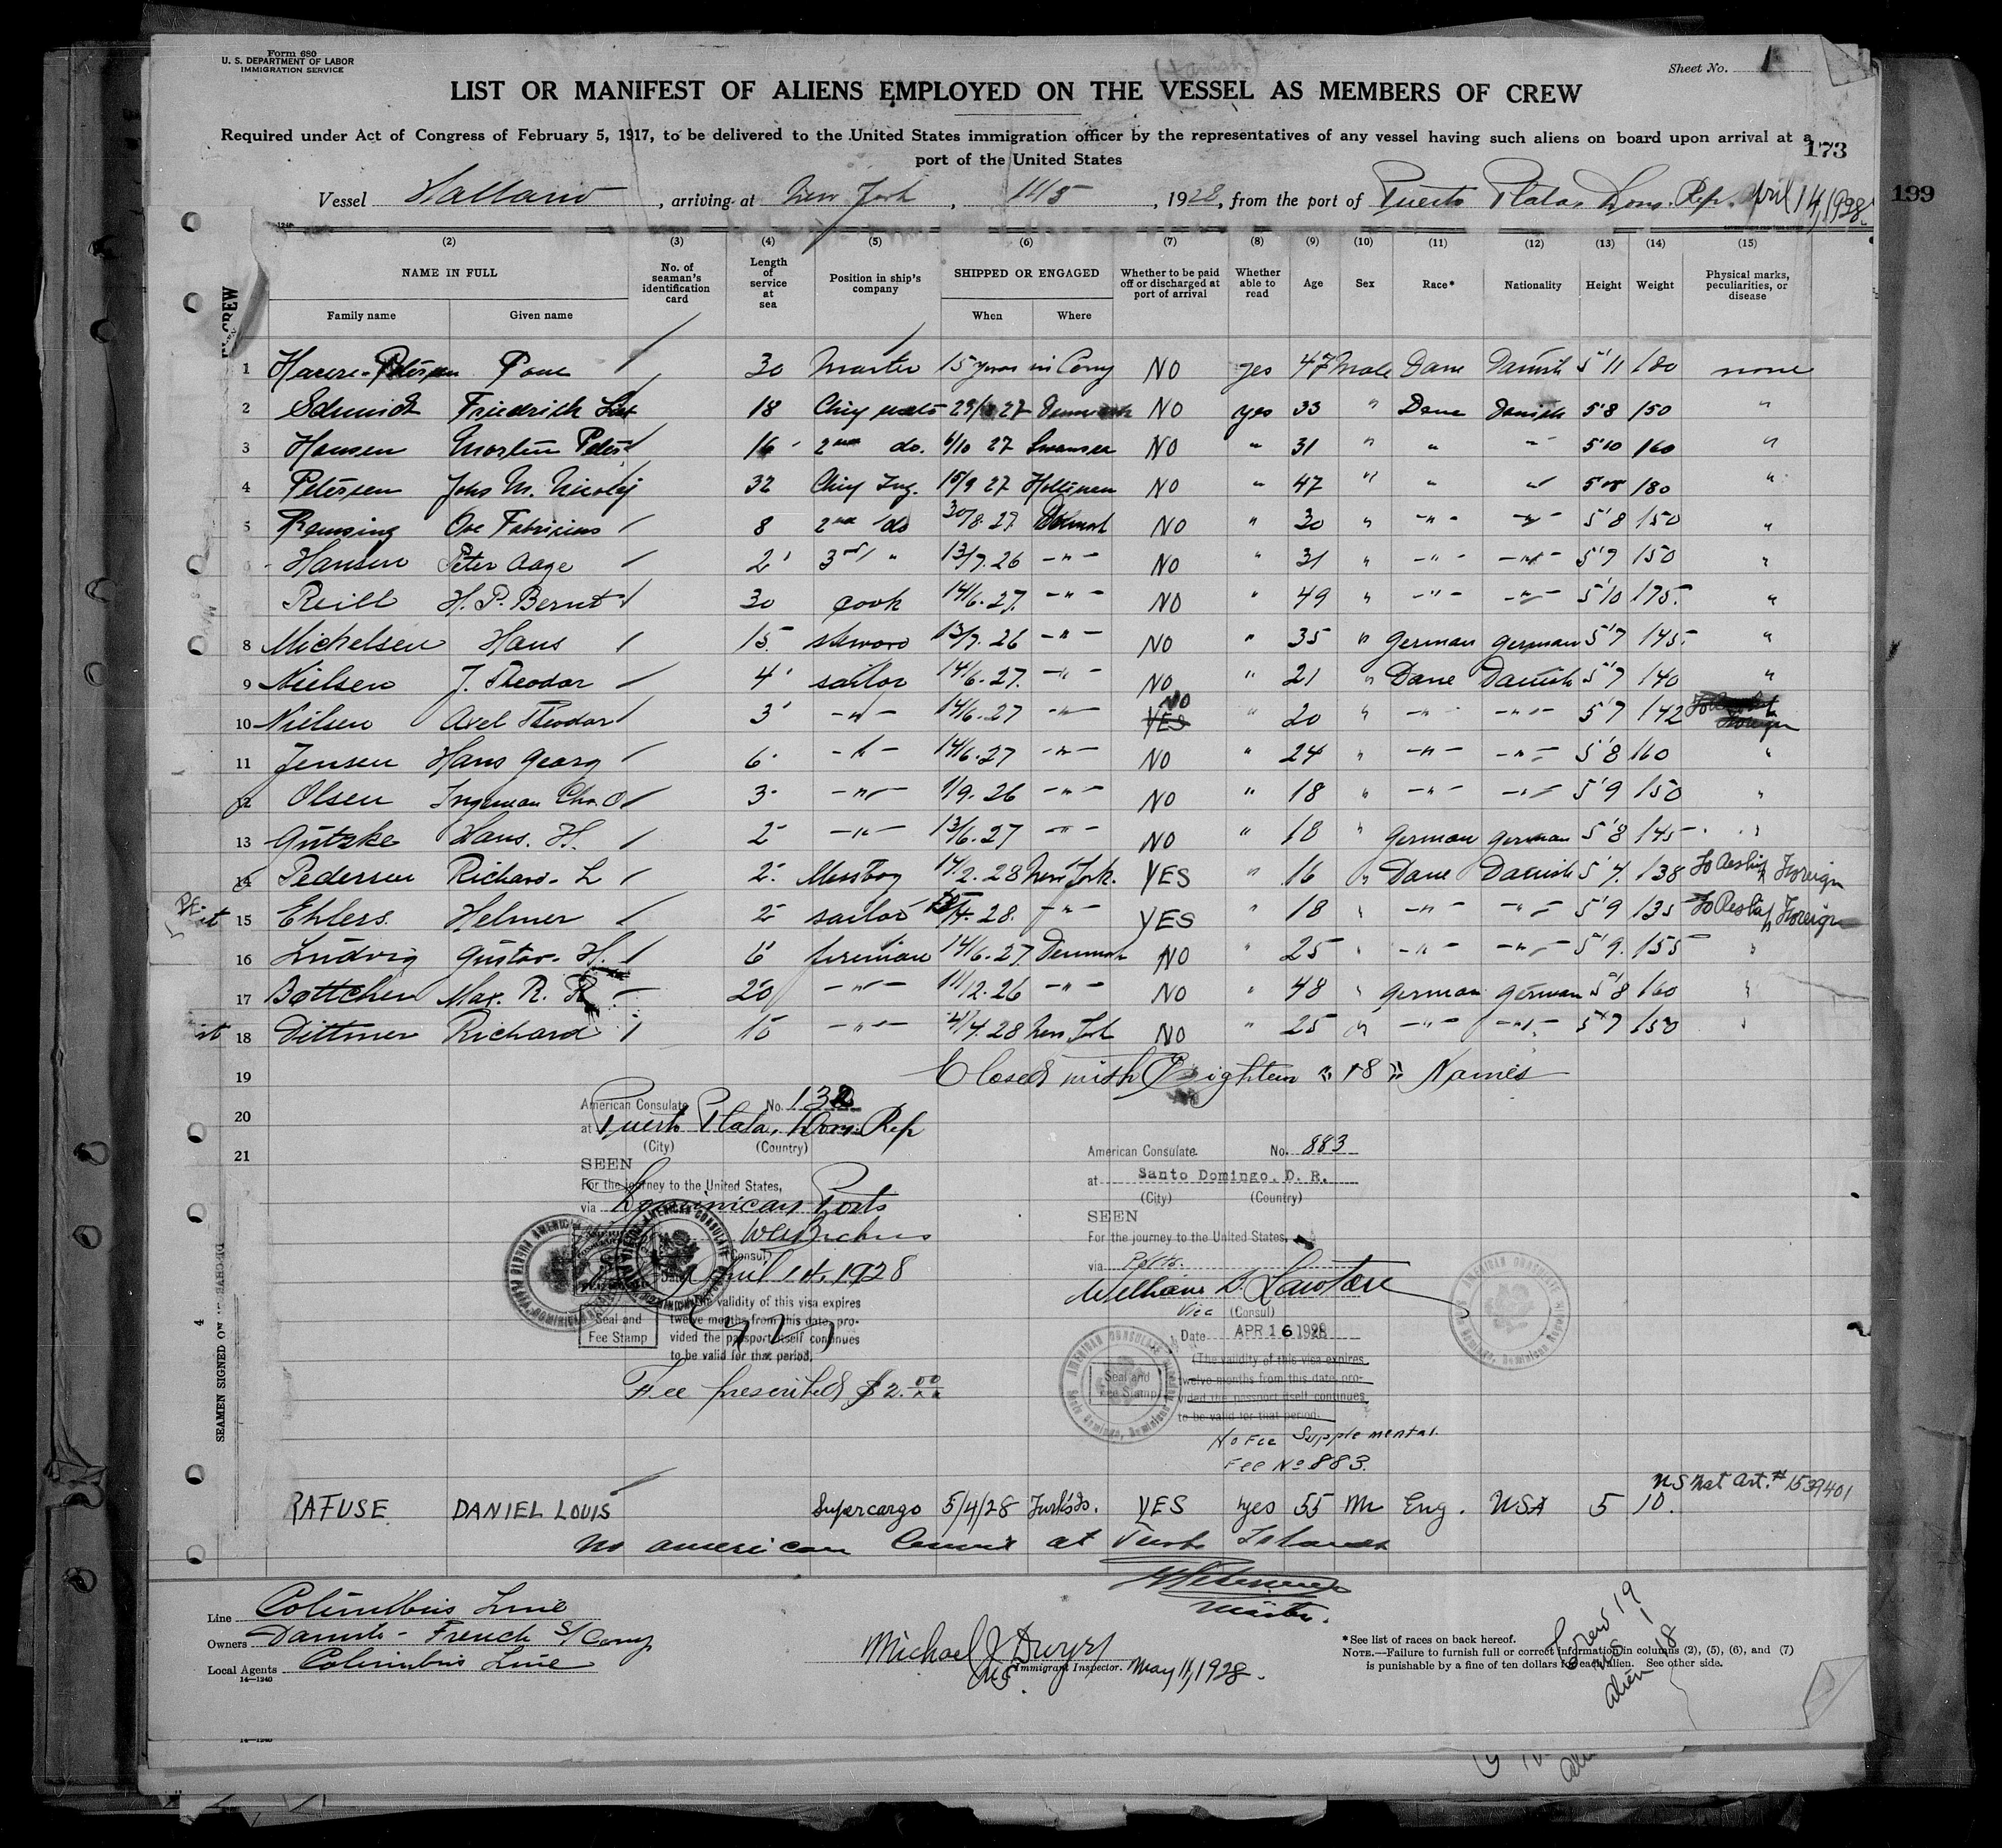 Form 680
U. S. DEPARTMENT OF LABOR
IMMIGRATION SERVICE
Sheet No. 1
LIST OR MANIFEST OF ALIENS EMPLOYED ON THE VESSEL AS MEMBERS OF CREW
Required under Act of Congress of February 5, 1917, to be delivered to the United States immigration officer by the representatives of any vessel having such aliens on board upon arrival at a
port of the United States
173
199
Vessel Halland, arriving at New York, 11/5, 1928, from the port of Puerto Plata, Dom. Rep. April 14, 1928
(2) (3) (4) (5) (6) (7) (8) (9) (10) (11) (12) (13) (14) (15)
NAME IN FULL No. of seaman's identification card Length of service at sea Position in ship's company SHIPPED OR ENGAGED Whether to be paid off or discharged at port of arrival Whether able to read Age Sex Race* Nationality Height Weight Physical marks, peculiarities, or disease
Family name Given name When Where
1 Petersen 30 Master 15 years in Comp NO yes 47 Male Dane Danish 5'11 180 none
2 Schmidt Friedrich 18 Chief mate 27 Denmark NO yes 33 " Dane Danish 5'8 150 "
3 Hansen Morten Peter 16 2nd do. 6/10 27 Swansea NO " 31 " " " 5'10 160 "
4 Petersen Johs M. Nicolaj 32 Chief Ing. 15/9 27 NO " 47 " " " 180 "
5 Ramsing Ove Fabricius 8 2nd do 30/8 27 NO " 30 " -"- -"- 5'8 150 "
Hansen Peter Aage 2 3rd " 13/7.26 -"- NO " 31 " -"- -"- 5'7 150 "
Reill H. P. Bernt 30 cook 14/6.27. -"- NO " 49 " -"- -"- 5'10 175. "
8 Michelsen Hans 15 steward 13/7.26 -"- NO " 35 " german german 5'7 145 "
9 Nielsen J. Theodor 4 sailor 14/6.27. -"- NO " 21 " Dane Danish 5'7 140 "
10 Nielsen Axel Theodor 3 -"- 14/6.27 -"- YES NO " 20 " -"- -"- 5'7 142 Foreign
11 Jensen Hans Georg 6 -"- 14/6.27 -"- NO " 24 " -"- -"- 5'8 160 "
12 Olsen Ingeman Chr. O 3 -"- 1/9.26 -"- NO " 18 " -"- -"- 5'9 150 "
13 Gützke Hans. H. 2 -"- 13/6.27 -"- NO " 18 " german german 5'8 145 "
14 Pedersen Richard. L 2 Messboy 14/2.28 New York. YES " 16 " Dane Danish 5'4. 138 To Reship Foreign
15 Ehlers. Helmer 2 sailor 28. -"- YES " 18 " -"- -"- 5'9 135 To Reship Foreign
16 Ludvig Gustav. H. 6 fireman 14/6.27. Denmark NO " 25 " -"- -"- 5'9. 155 "
17 Bottcher Max. R. R 20 -"- 11/12.26 -"- NO " 48 " german german 5'8 160 "
18 Dittmer Richard 10 -"- 28 New York NO " 25 " -"- -"- 5'7 150 "
19 Closed with Eighteen "18" Names
20
21
American Consulate No. 132
at Puerto Plata, Dom. Rep
(City) (Country)
SEEN
For the journey to the United States,
via Dominican Ports
(Consul)
Date April 14, 1928
The validity of this visa expires
twelve months from this date, pro-
vided the passport itself continues
to be valid for that period.
Seal and
Fee Stamp
Fee prescribed $2.00
American Consulate No. 883
at Santo Domingo, D. R.
(City) (Country)
SEEN
For the journey to the United States,
via
William
Vice (Consul)
Date APR 16 1928
(The validity of this visa expires
twelve months from this date, pro-
vided the passport itself continues
to be valid for that period.
Seal and
Fee Stamp
No Fee Supplemental
Fee No 883.
US Nat Crt. # 1539401
RAFUSE DANIEL LOUIS Supercargo 5/4/28 Turk's Is. YES yes 55 M Eng. USA 5 10.
No american Consul at Turks Islands
Master.
Line Columbus Line
Owners Danish-French S/S Comp
Local Agents Columbus Line
14—1240
Michael J Dwyer
Immigrant Inspector. May 11, 1928.
* See list of races on back hereof.
NOTE.—Failure to furnish full or correct information in columns (2), (5), (6), and (7)
is punishable by a fine of ten dollars for each alien. See other side.
Crew 19
US 1
alien 18
SEAMEN SIGNED ON